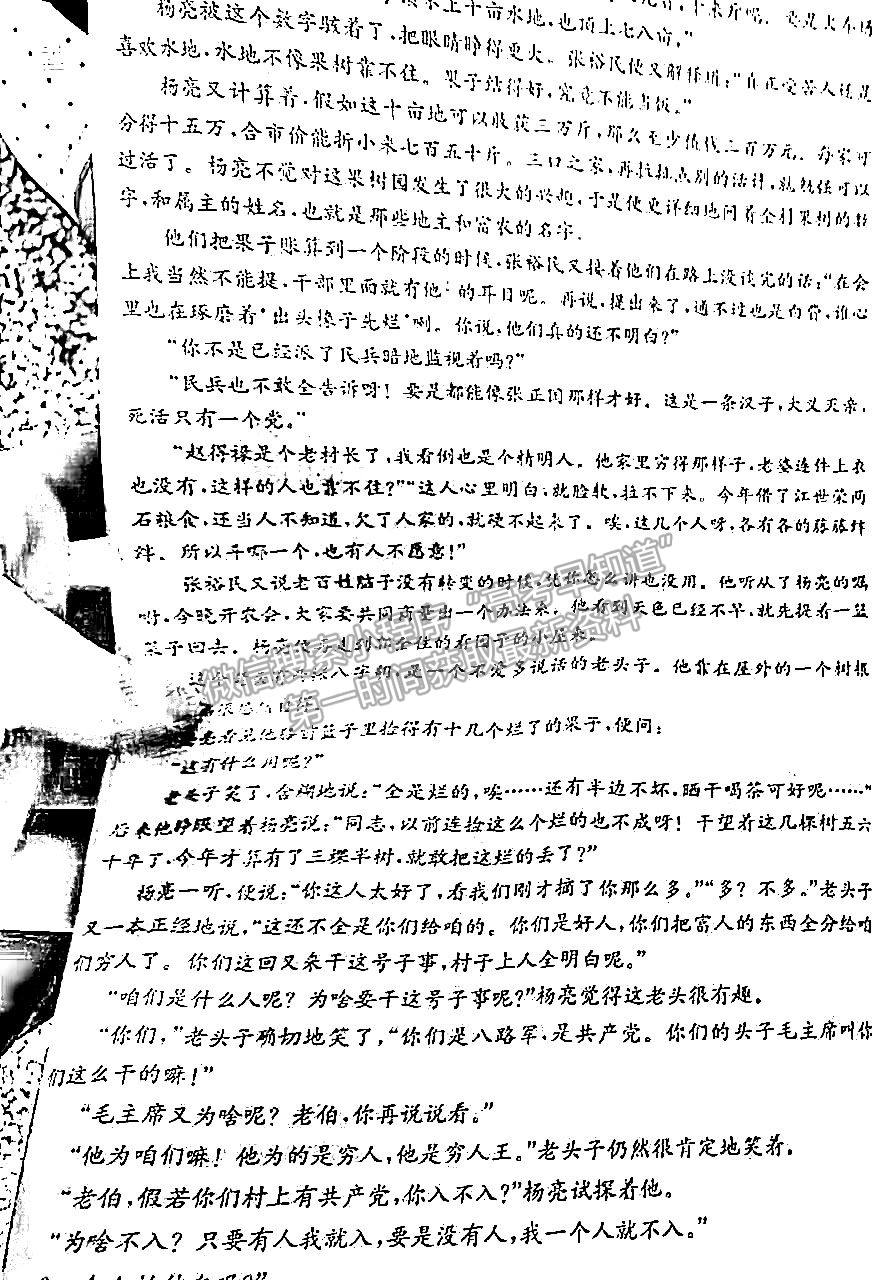 水上十亩水地，也顶上七八亩。”
杨亮被这个数字骇着了，把眼睛睁得更大。张裕民便又解释道：“真正受苦人还是
喜欢水地，水地不像果树靠不住。果子结得好，究竟不能当饭。”
杨亮又计算着，假如这十亩地可以收获三万斤，那么至少值钱二百万元。每家可
分得十五万，合市价能折小米七百五十斤。三口之家，再拉扯点别的活计，就勉强可以
过活了。杨亮不觉对这果树园发生了很大的兴趣，于是便更详细地问着全村果树的数
字，和属主的姓名，也就是那些地主和富农的名字。
他们把果子账算到一个阶段的时候，张裕民又接着他们在路上没谈完的话：“在会
上我当然不能提，干部里面就有他的耳目呢。再说，提出来了，通不过也是白费，谁心
里也在琢磨着‘出头椽子先烂’咧。你说，他们真的还不明白？”
“你不是已经派了民兵暗地监视着吗？”
“民兵也不敢全告诉呀！要是都能像张正国那样才好。这是一条汉子，大义灭亲，
死活只有一个党。”
“赵得禄是个老村长了，我看倒也是个精明人。他家里穷得那样子，老婆连件上衣
也没有，这样的人也靠不住？”“这人心里明白，就脸软，拉不下来。今年借了江世荣两
石粮食，还当人不知道，欠了人家的，就硬不起来了。唉，这几个人呀，各有各的藤藤绊
绊。所以干哪一个，也有人不愿意！”
张裕民又说老百姓脑子没有转变的时候，凭你怎么讲也没用。他听从了杨亮的嘱
咐，今晚开农会，大家要共同商量出一个办法来，他看到天色已经不早，就先提着一篮
果子回去。杨亮便走到 住的看园子的小屋来。
八字胡，是一个不爱多说话的老头子。他靠在屋外的一个树根
篮子里捡得有十几个烂了的果子，便问：
“这有什么用呢？”
老头子笑了，含糊地说：“全是烂的，唉……还有半边不坏，晒干喝茶可好呢……”
后来他睁眼望着杨亮说：“同志，以前连捡这么个烂的也不成呀！干望着这几棵树五六
十年了，今年才算有了三棵半树，就敢把这烂的丢了？”
杨亮一听，便说：“你这人太好了，看我们刚才摘了你那么多。”“多？不多。”老头子
又一本正经地说，“这还不全是你们给咱的。你们是好人，你们把富人的东西全分给咱
们穷人了。你们这回又来干这号子事，村子上人全明白呢。”
“咱们是什么人呢？为啥要干这号子事呢？”杨亮觉得这老头很有趣。
“你们，”老头子确切地笑了，“你们是八路军，是共产党。你们的头子毛主席叫你
们这么干的嘛！”
“毛主席又为啥呢？老伯，你再说说看。”
“他为咱们嘛！他为的是穷人，他是穷人王。”老头子仍然很肯定地笑着。
“老伯，假若你们村上有共产党，你入不入？”杨亮试探着他。
“为啥不入？只要有人我就入，要是没有人，我一个人就不入。”
微信搜索小程序“高考早知道”
第一时间获取最新资料